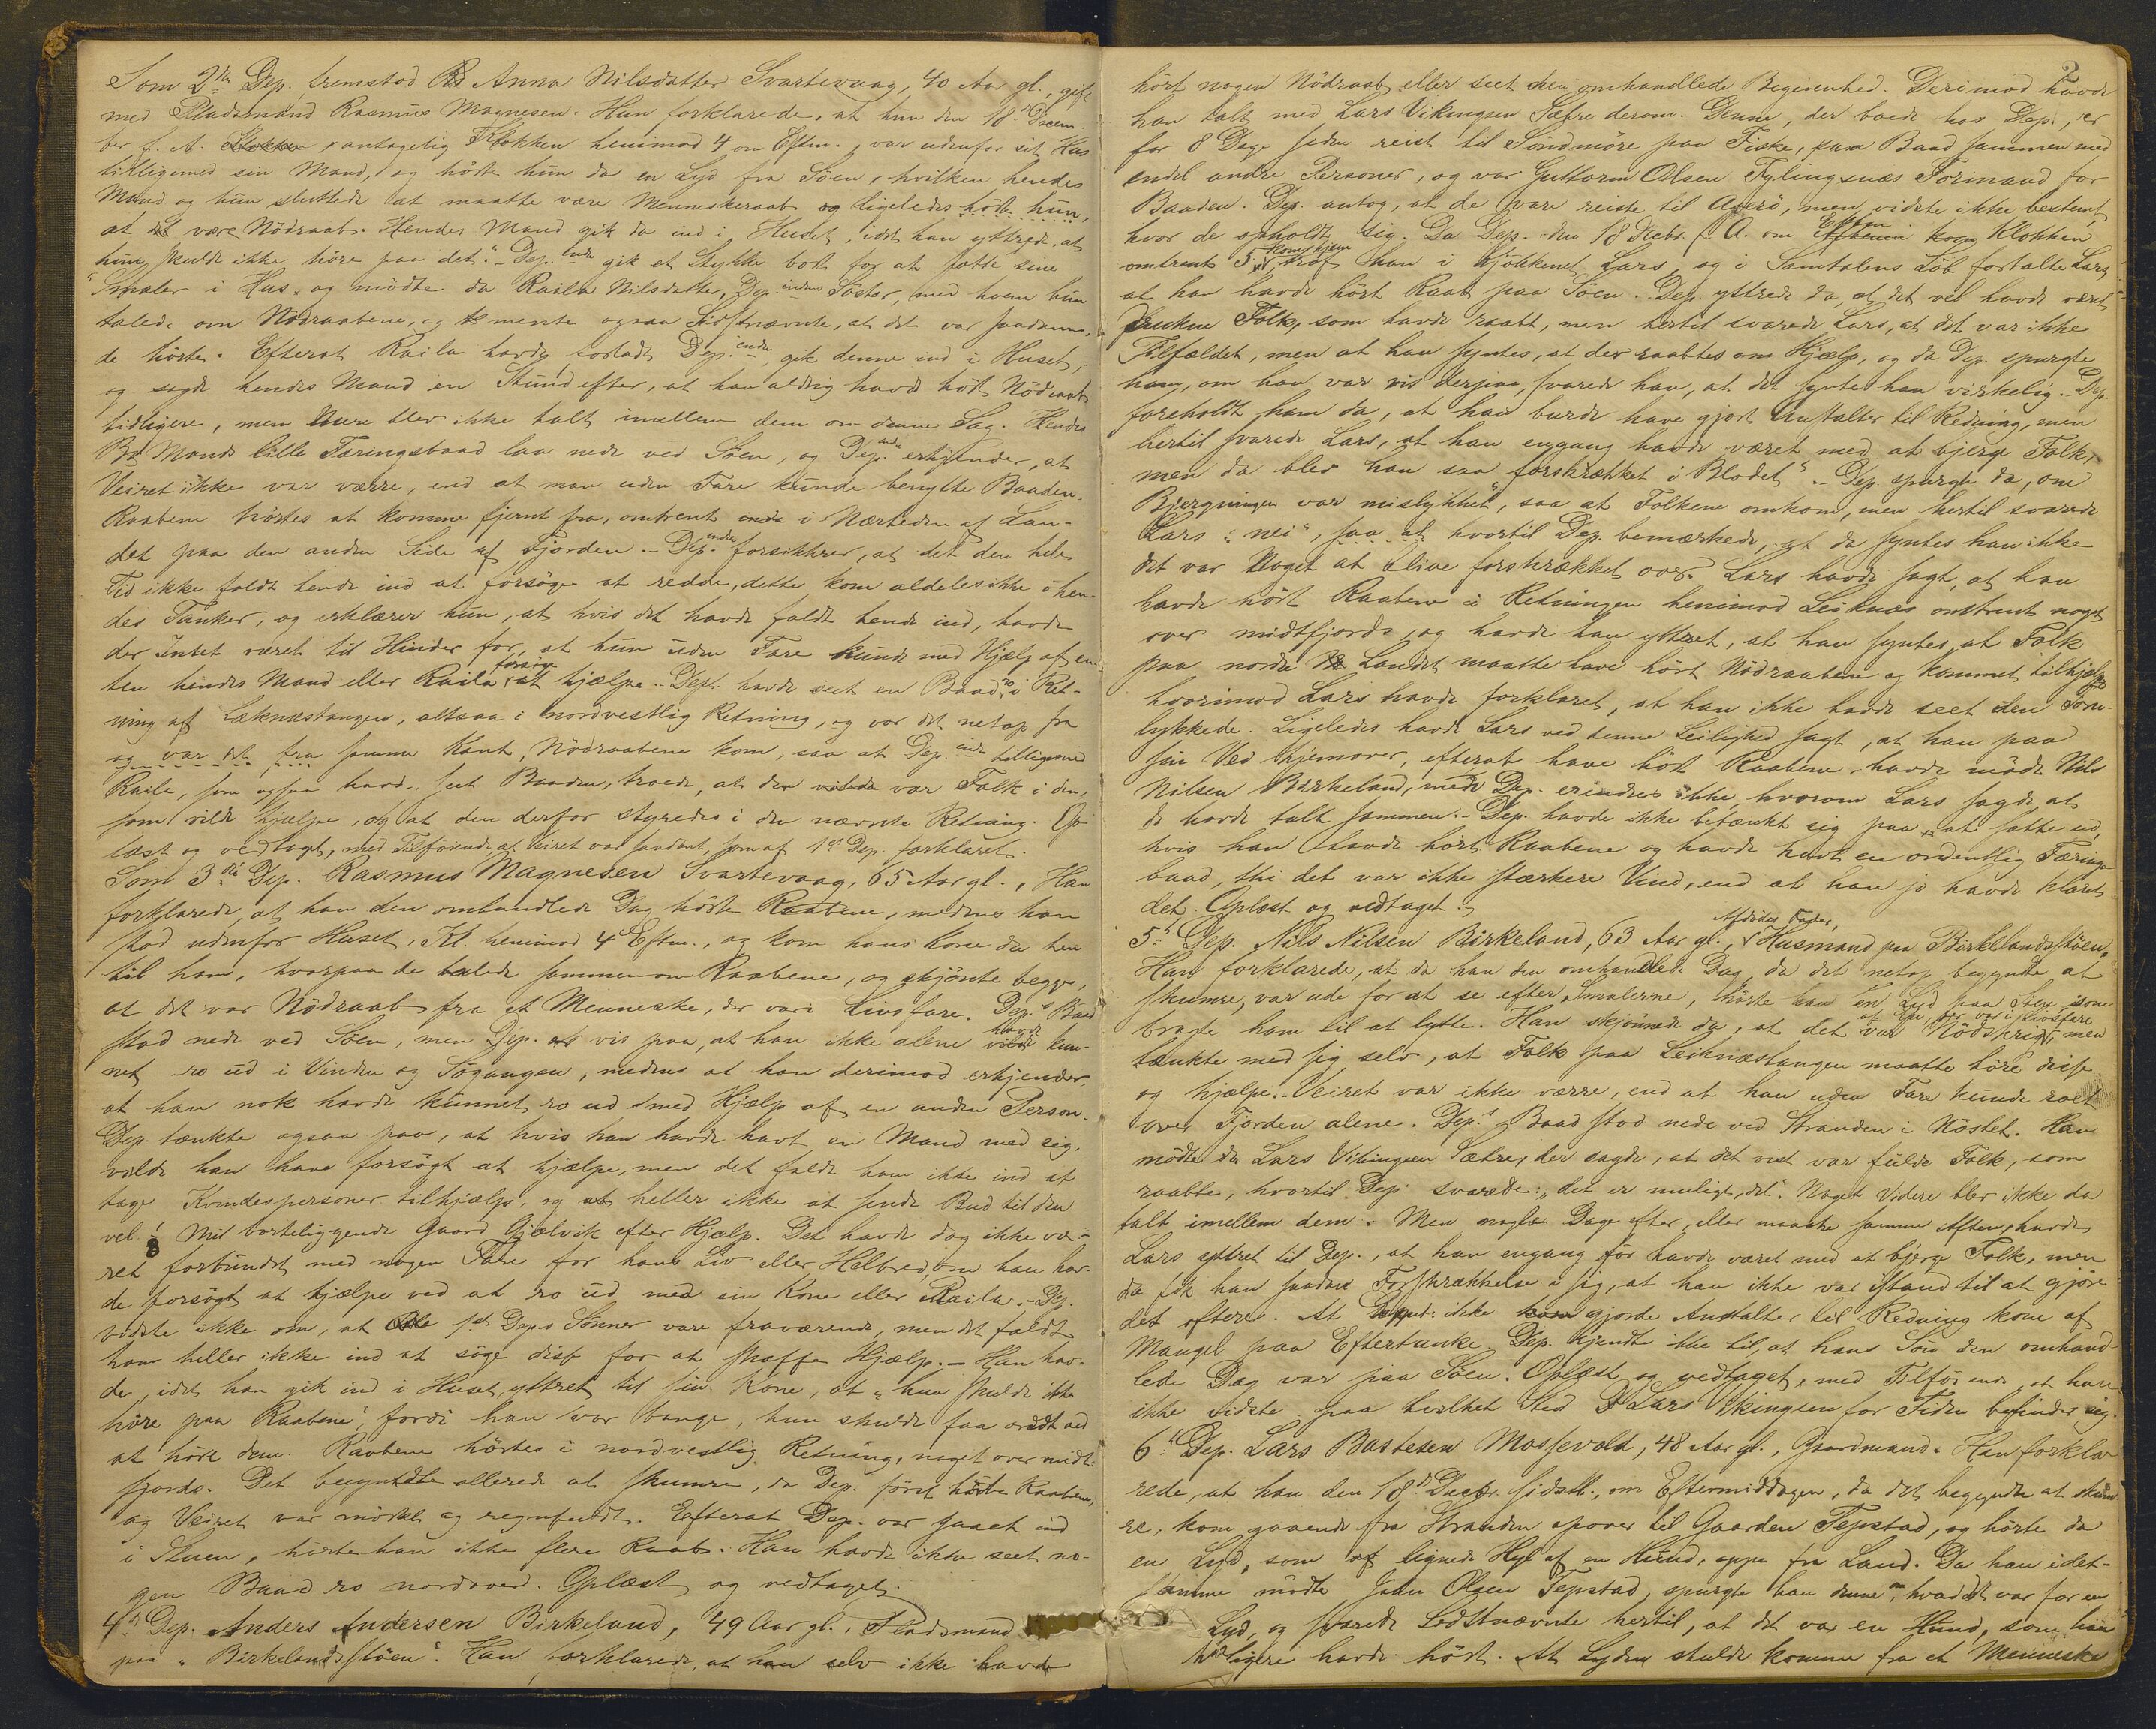 Som 2den Dep. fremstod Anna Nilsdatter Svartevaag, 40 Aar gl., gift
med Pladsmand Rasmus Magnesen. Hun forklarede, at hun den 18de Decem-
ber f. A. Klokken, antagelig Klokken henimod 4 om Eftm., var udenfor sit Hus
tilligemed sin Mand, og hörte hun da en Lyd fra Söen, hvilken hendes
Mand og hun sluttede at maatte være Menneskeraab og ligeledes hörte hun,
at det være Nödraab. Hendes Mand gik da ind i Huset, idet han yttrede, at
hun „skulde ikke höre paa det“. – Dep.inden gik et Stykke bort for at sætte sine
Smaler i Hus, og mödte da Raila Nilsdatter, Dep.indens Söster, med hvem hun
talede om Nödraabene, og mente ogsaa Sidstnævnte, at det var saadanne,
de hörte. Efterat Raila havde forladt Dep.inden gik denne ind i Huset,
og sagde hendes Mand en Stund efter, at han aldrig havde hört Nödraab
tidligere, men Mere blev ikke talt imellem dem om denne Sag. Hendes
Mands lille Færingsbaad laa nede ved Söen, og Dep.inden erkjender, at
Veiret ikke var værre, end at man uden Fare kunde benytte Baaden.
Raabene hörtes at komme fjernt fra, omtrent i Nærheden af Lan-
det paa den anden Side af Fjorden. – Dep.inden forsikkrer, at det den hele
Tid ikke faldt hende ind at forsöge at redde, dette kom aldeles ikke i hen-
des Tanker, og erklærer hun, at hvis det havde faldt hende ind, havde
der Intet været til Hinder for, at hun uden Fare kunde med Hjælp af en-
ten hendes Mand eller Raila forsöge at hjælpe. – Dep. havde seet en Baad ro i Ret-
ning af Læknæstangen, altsaa i nordvestlig Retning, og var det netop fra
og var det fra samme Kant, Nödraabene kom, saa at Dep.inden tilligemed
Raila, som ogsaa havde seet Baaden, troede, at der var Folk i den,
som vilde hjælpe, og at den derfor styredes i den nævnte Retning. Op-
læst og vedtaget, med Tilföiende, at Veiret var saadant, som af 1ste Dep. forklaret.
Som 3die Dep. Rasmus Magnesen Svartevaag, 65 Aar gl., Han
forklarede, at han den omhandlede Dag hörte Raabene, medens han
stod udenfor Huset, Kl. henimod 4 Eftm., og kom hans Kone da hen
til ham, hvorpaa de talede sammen om Raabene, og skjönte begge,
at det var Nödraab fra et Menneske, der var i Livsfare. Dep.s Baad
stod nede ved Söen, men Dep. er vis paa, at han ikke alene havde kun-
net ro ud i Vinden og Sögangen, medens at han derimod erkjender,
at han nok havde kunnet ro ud med Hjælp af en anden Person.
Dep. tænkte ogsaa paa, at hvis han havde havt en Mand med sig,
vilde han have forsögt at hjælpe, men det faldt ham ikke ind at
tage Kvindespersoner tilhjælp, og heller ikke at sende Bud til den
vel 1/8 Mil bortliggende Gaard Gjælvik efter Hjælp. Det havde dog ikke væ-
ret forbundet med nogen Fare for hans Liv eller Helbred, om han hav-
de forsögt at hjælpe ved at ro ud med sin Kone eller Raila. – Dep.
vidste ikke om, at 1ste Dep.s Sönner vare fraværende, men det faldt
ham heller ikke ind at söge disse for at skaffe Hjælp. – Han hav-
de, idet han gik ind i Huset, yttret til sin Kone, at „hun skulde ikke
höre paa Raabene“, fordi han var bange, hun skulde faa ondt ved
at höre dem. Raabene hörtes i nordvestlig Retning, noget over midt-
fjords. Det begyndte allerede at skumre, da Dep. först hörte Raabene,
og Veiret var mörkt og regnfuldt. Efterat Dep. var gaaet ind
i Stuen, hörte han ikke flere Raab. Han havde ikke seet no-
gen Baad ro nordover. Oplæst og vedtaget.
4de Dep. Anders Andersen Birkeland, 49 Aar gl., Pladsmand
paa „Birkelandsstöen“. Han forklarede, at han selv ikke havde
hört nogen Nödraab eller seet den omhandlede Begivenhed. Derimod havde
han talt med Lars Vikingsen Sætre derom. Denne, der boede hos Dep., er
for 8 Dage siden reist til Söndmöre paa Fiske, paa Baad sammen med
endel andre Personer, og var Guttorm Olsen Tylingsnæs Formand for
Baaden. Dep. antog, at de vare reiste til Aaerö, men vidste ikke bestemt
hvor de opholdt sig. Da Dep. den 18 Decbr. f. A. om Eftm Klokken
omtrent 5 kom hjem traf han i Kjökkenet Lars, og i Samtalens Löb fortalte Lars,
at han havde hört Raab paa Söen. Dep. yttrede da, at det vel havde været
drukne Folk, som havde raabt, men hertil svarede Lars, at det var ikke
Tilfældet, men at han syntes, at der raabtes om Hjælp, og da Dep. spurgte
ham, om han var vis derpaa, svarede han, at det syntes han virkelig. Dep.
foreholdt ham da, at han burde have gjort Anstalter til Redning, men
hertil svarede Lars, at han engang havde været med at bjerge Folk,
men da blev han saa „forskrækket i Blodet“. – Dep. spurgte da, om
Bjergningen var mislykket, saa at Folkene omkom, men hertil svarede
Lars „nei“, saa at hvortil Dep. bemærkede, at da syntes han ikke
det var Noget at blive forskrækket over. Lars havde sagt, at han
havde hört Raabene i Retningen henimod Leiknæs omtrent noget
over midtfjords, og havde han yttret, at han syntes, at Folk
paa nordre Landet maatte have hört Nödraabene og kommet tilhjælp,
hvorimod Lars havde forklaret, at han ikke havde seet den Foru-
lykkede. Ligeledes havde Lars ved denne Leilighed sagt, at han paa
sin Vei hjemover, efterat have hört Raabene, havde mödt Nils
Nilsen Birkeland, men Dep. erindrer ikke, hvorom Lars sagde, at
de havde talt sammen. – Dep. havde ikke betænkt sig paa at sætte ud,
hvis han havde hört Raabene og havde havt en ordentlig Færings-
baad, thi det var ikke stærkere Vind, end at han jo havde klaret
det. Oplæst og vedtaget.
5te Dep. Nils Nilsen Birkeland, 63 Aar gl., Afdödes Fader, Husmand paa Birkelandsstöen.
Han forklarede, at da han den omhandlede Dag, da det netop begyndte at
skumre, var ude for at se efter Smalerne, hörte han en Lyd paa Söen, som
bragte ham til at lytte. Han skjönnede da, at det var Nödskrig af En, der var i Livsfare, men
tænkte med sig selv, at Folk paa Leiknæstangen maatte höre disse
og hjælpe. Veiret var ikke værre, end at han uden Fare kunde roet
over Fjorden alene. Dep.s Baad stod nede ved Stranden i Nöstet. Han
mödte da Lars Vikingsen Sætre, der sagde, at det vist var fulde Folk, som
raabte, hvortil Dep. svarede: „det er muligt, det“. Noget Videre blev ikke da
talt imellem dem. Men nogle Dage efter, eller maaske samme Aften, havde
Lars yttret til Dep., at han engang för havde været med at bjerge Folk, men
da fik han saadan Forskrækkelse i sig, at han ikke var istand til at gjöre
det oftere. At Deput. ikke gjorde Anstalter til Redning kom af
Mangel paa Eftertanke. Dep. kjendte ikke til, at hans Sön den omhand-
lede Dag var paa Söen. Oplæst og vedtaget, med Tilföiende, at han
ikke vidste paa hvilket Sted Lars Vikingsen for Tiden befinder sig.
6te Dep. Lars Bastesen Mossevold, 48 Aar gl., Gaardmand. Han forkla-
rede, at han den 18de Decbr. sidstl., om Eftermiddagen, da det begyndte at skum-
re, kom gaaende fra Stranden opover til Gaarden Tepstad, og hörte da
en Lyd, som lignede Hyl af en Hund, oppe fra Land. Da han idet-
samme mödte Jan Olsen Tepstad, spurgte han denne om, hvad det var for en
Lyd, og svarede Sidstnævnte hertil, at det var en Hund, som han
tidligere havde hört. At Lyden skulde komme fra et Menneske